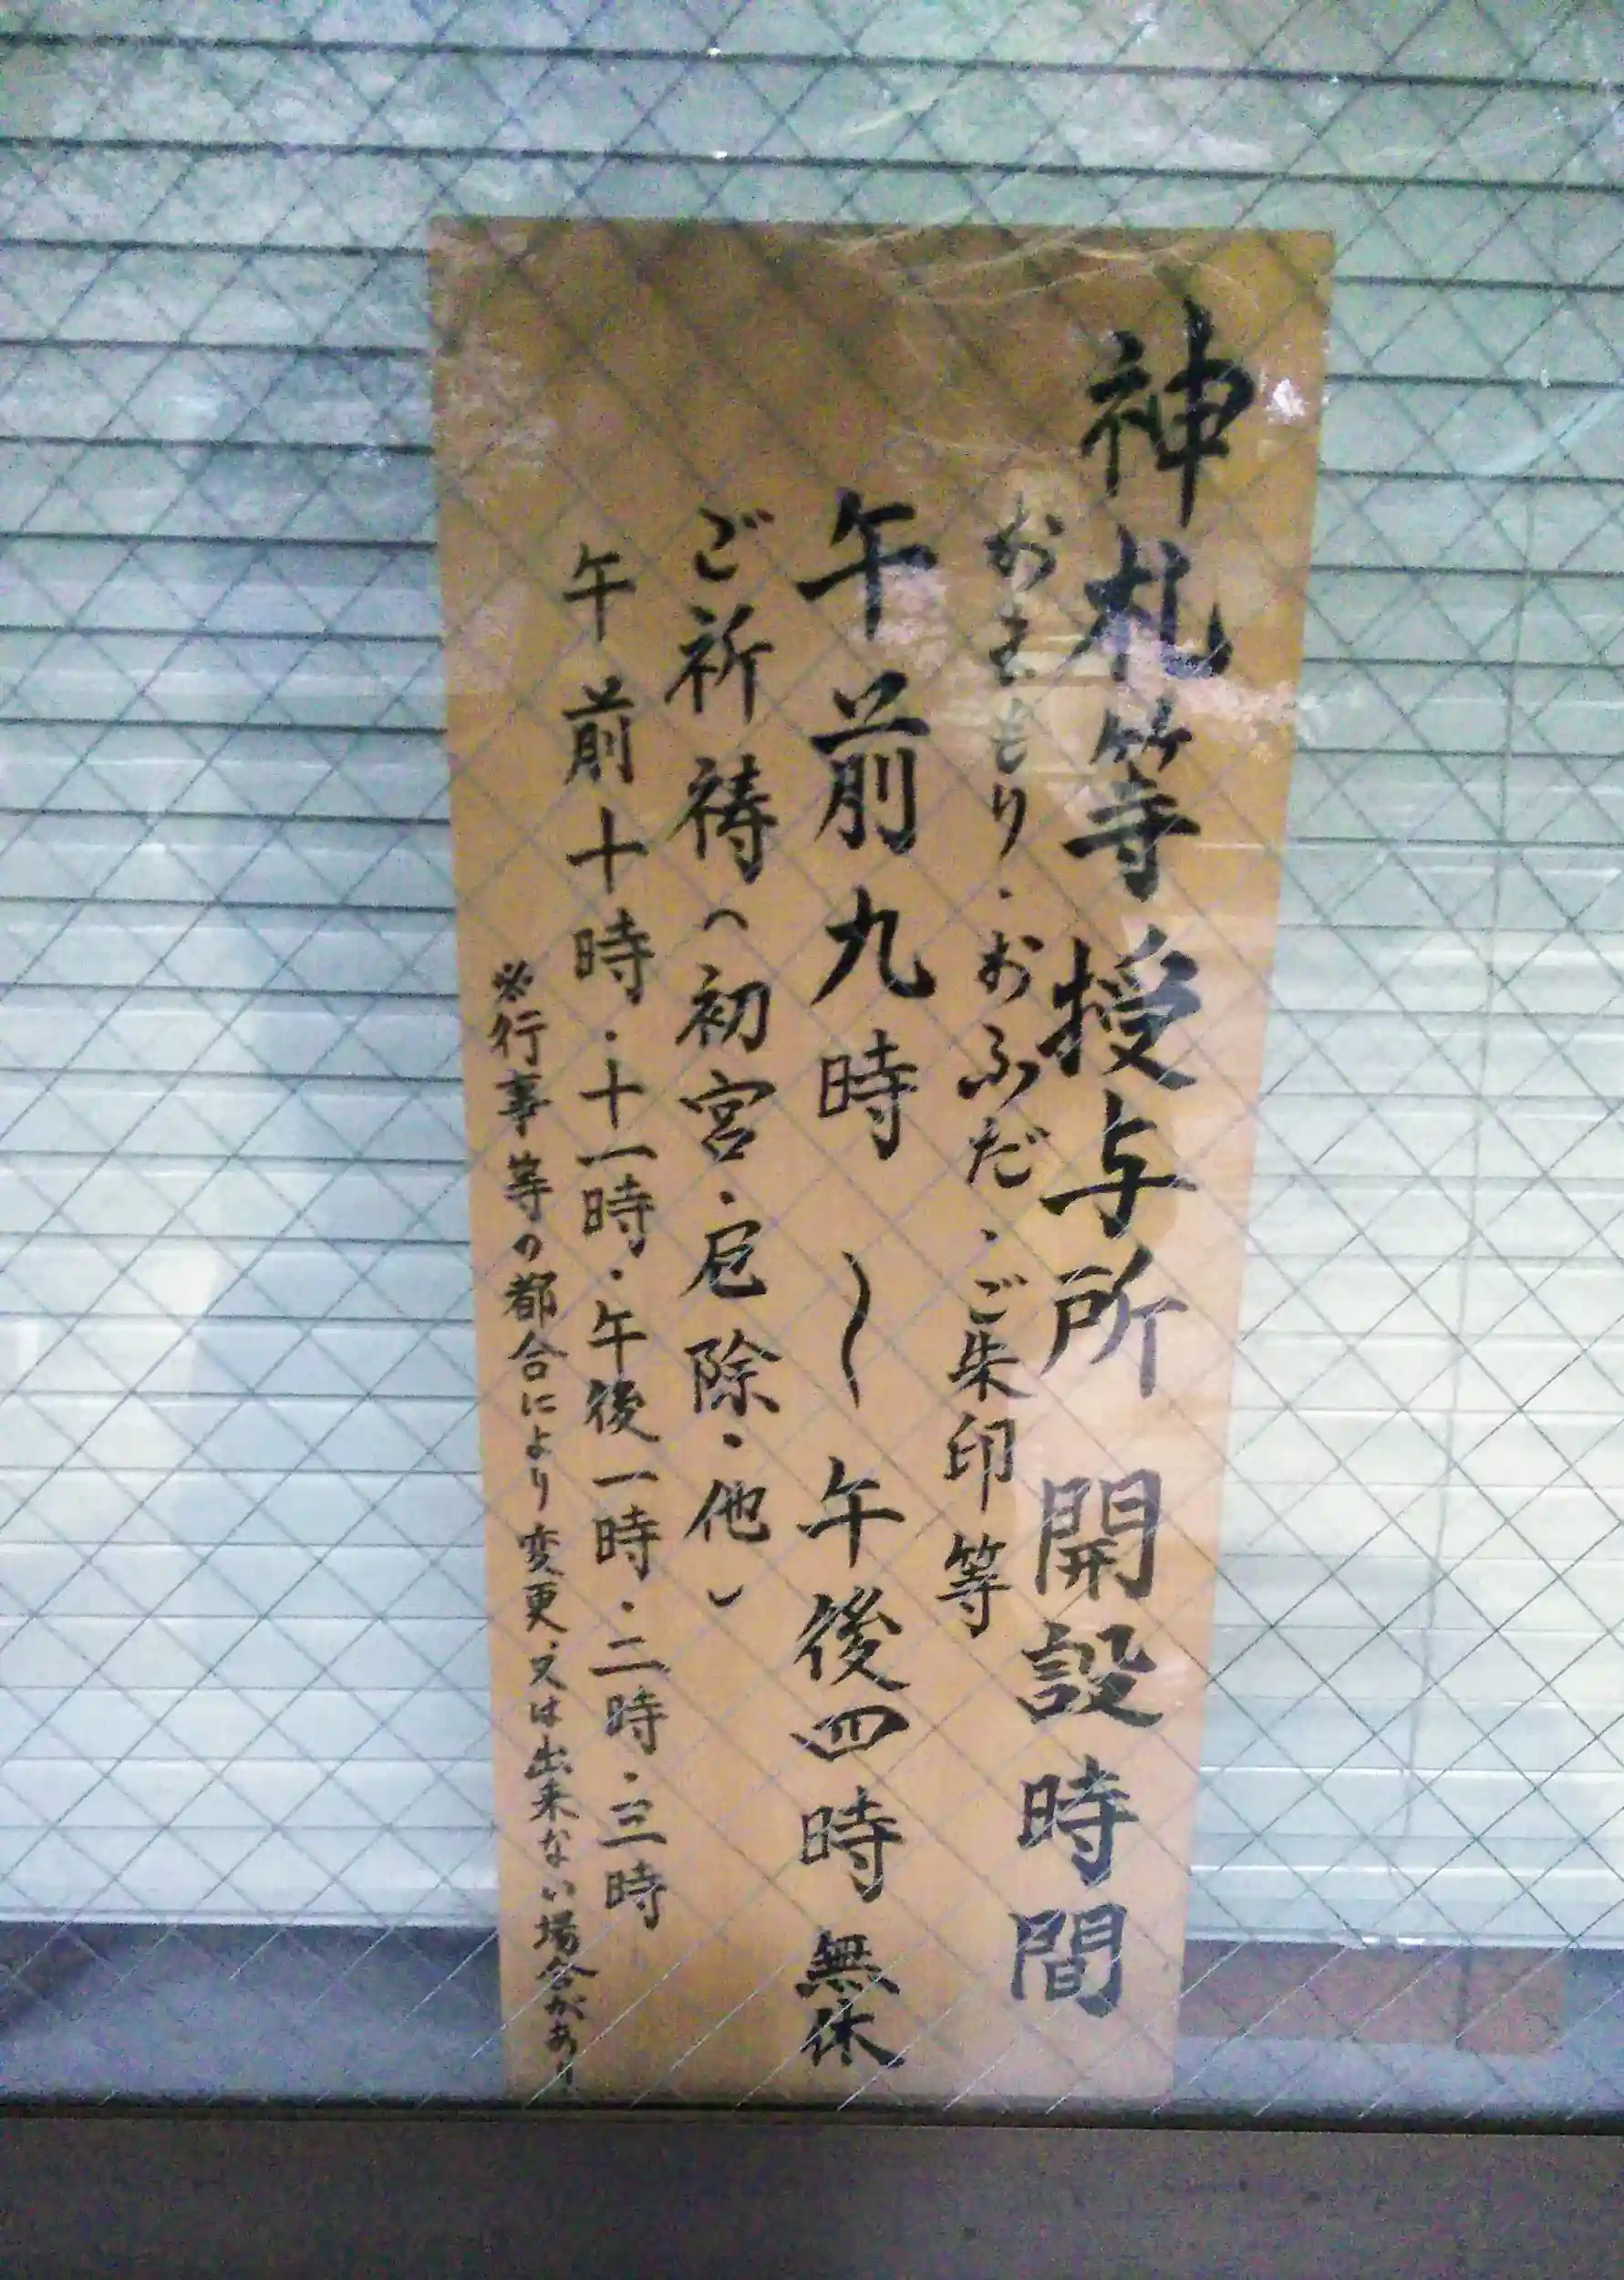 神札等授与所 開設時間
おまもり・おふだ・ご朱印等
午前九時 〜 午後四時 無休
ご祈祷(初宮・厄除・他)
午前十時・十一時・午後一時・二時・三時
※行事等の都合により変更、又は出来ない場合があり